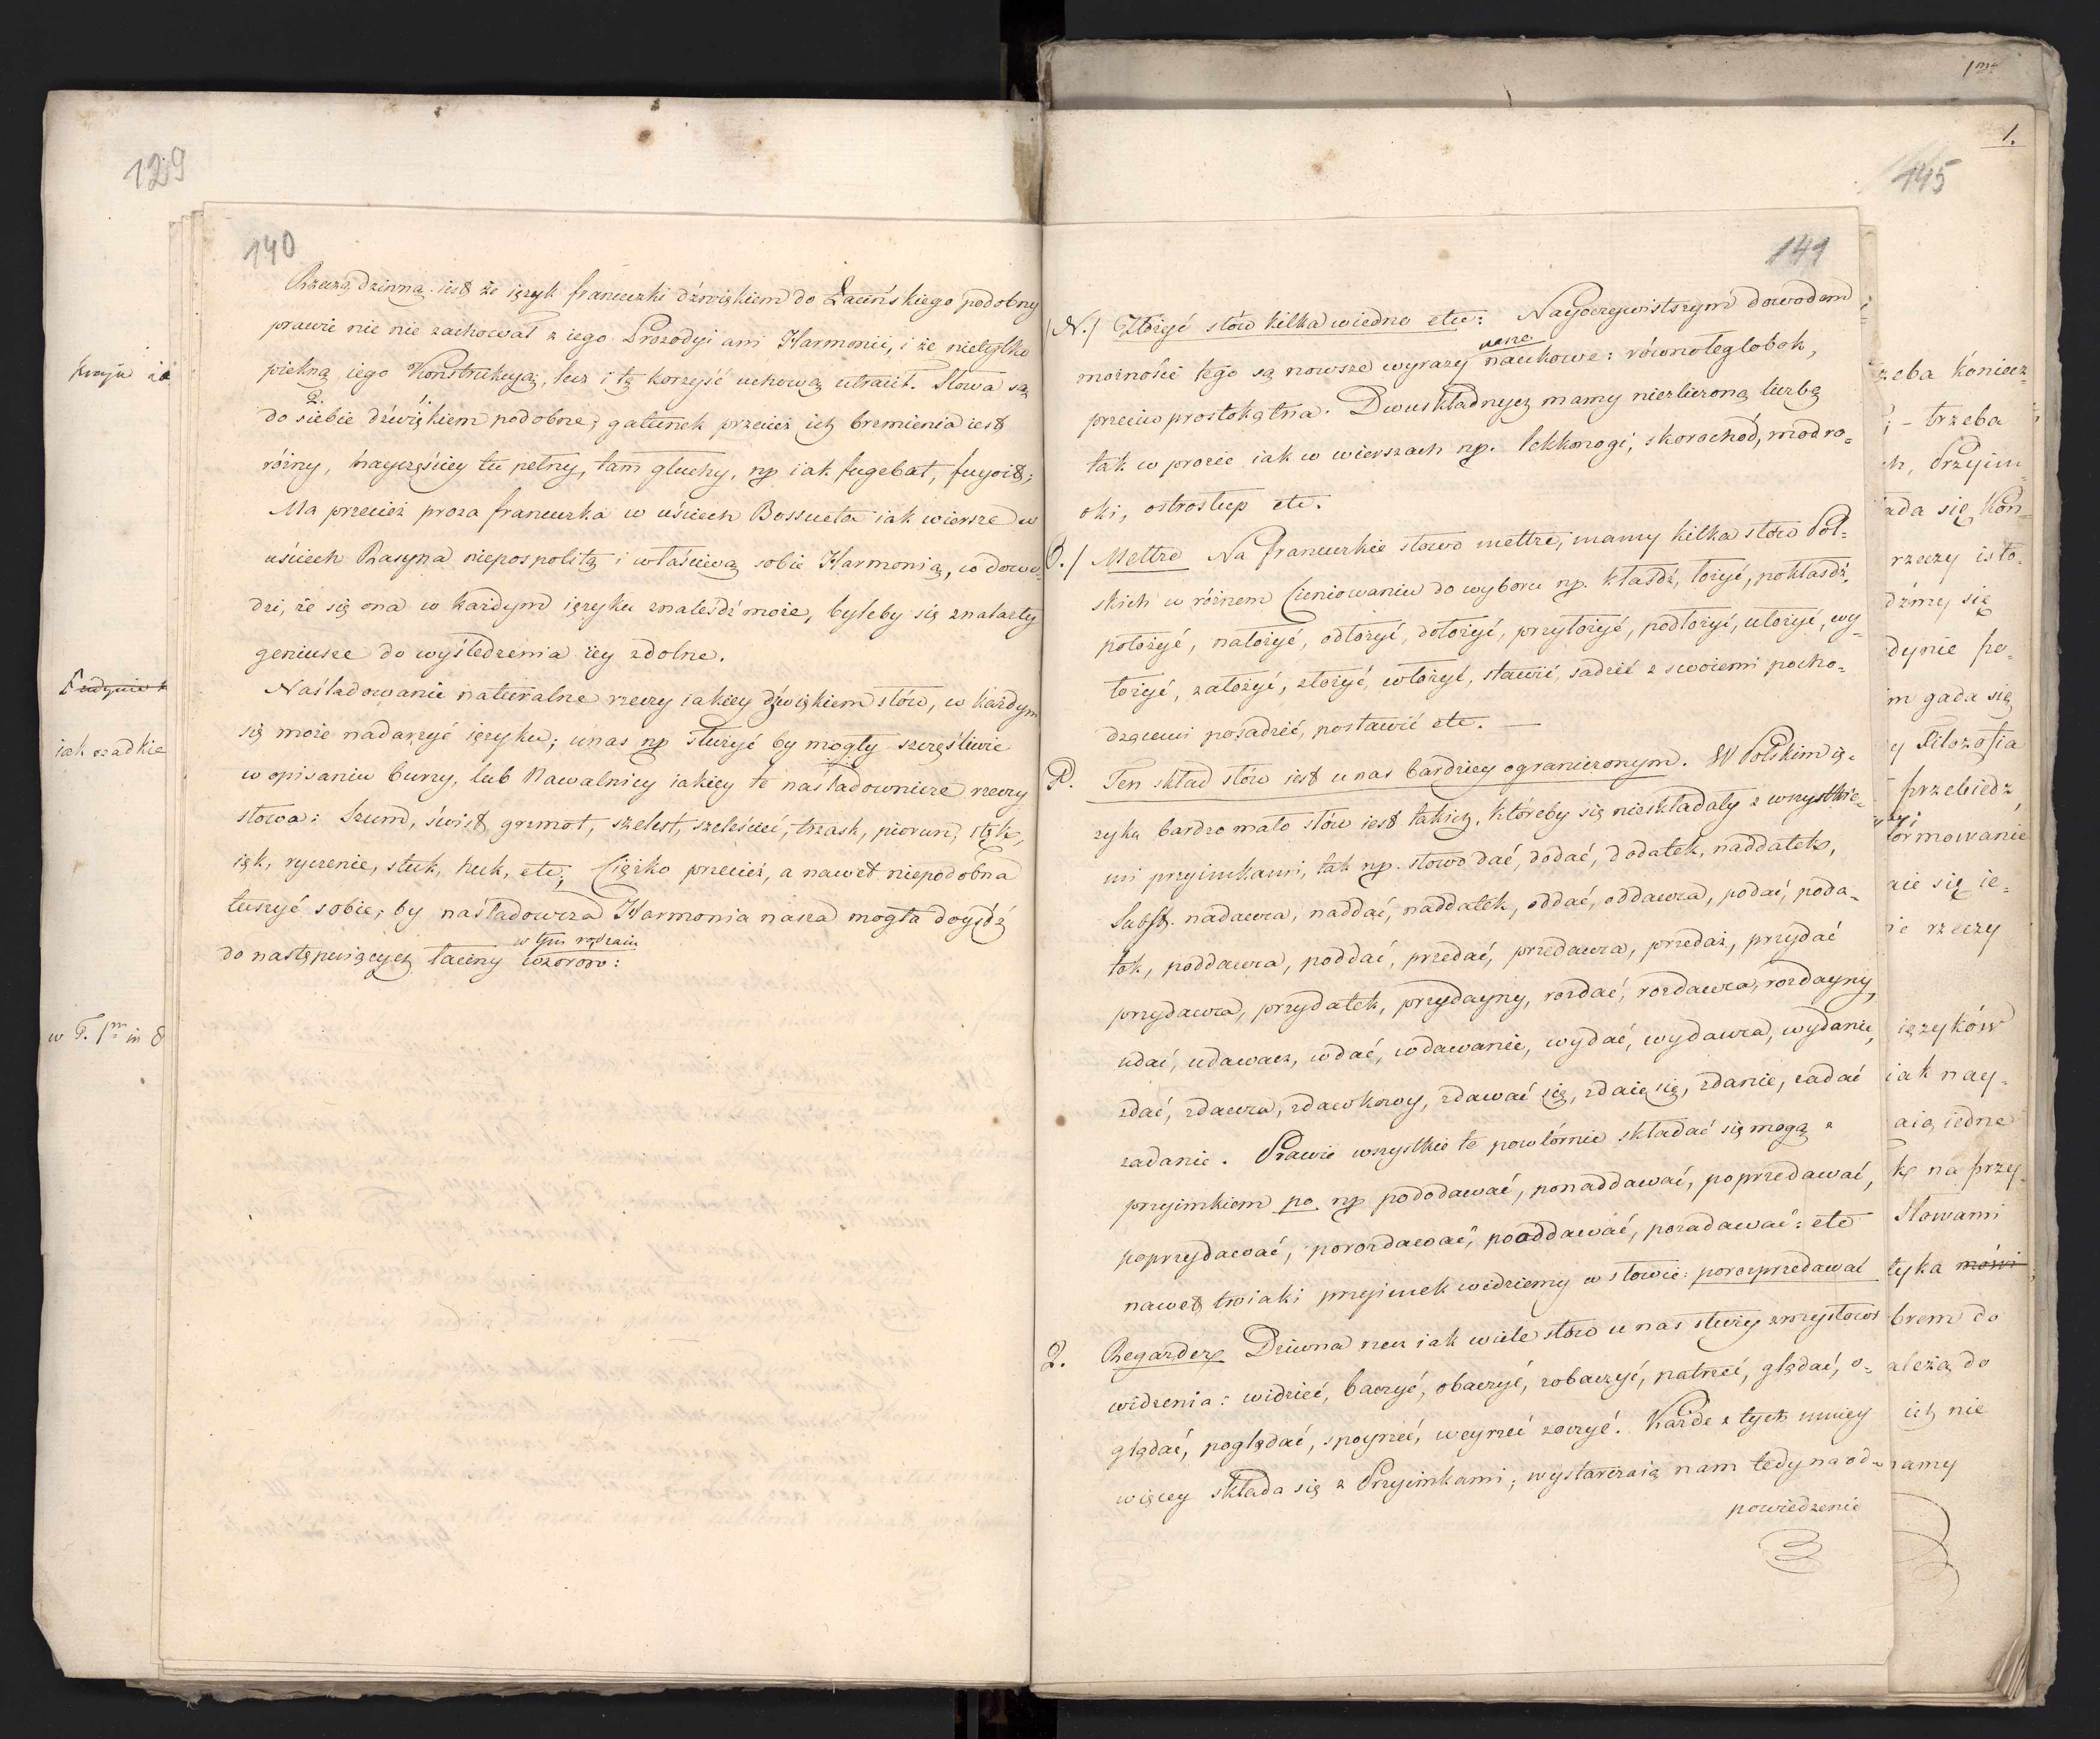 129
140
Rzeczą dziwną iest że ięzyk francuzki dźwiękiem do Łacińskiego podobny
prawie nic nie zachował z iego Prozodyi ani Harmonii, i że nietylko
piękną iego Konstrukcyą, lecz i tę korzyść uchową utracił. Słowa są
2. 1.
do siebie dźwiękiem podobne, gatunek przecież ich brzmienia iest
różny, nayczęściey tu pełny, tam głuchy, np iak fugebat, fuyoit;
Ma przecież proza francuzka w uściech Bossueta iak wiersze w
uściech Rasyna niepospolitą i właściwą sobie Harmonią, co dowo-
dzi, że się ona w każdym ięzyku znaleśdź może, byleby się znalazły
geniusze do wyśledzenia iey zdolne.
Naśladowanie naturalne rzeczy iakiey dźwiękiem słów, w każdym
się może nadarzyć ięzyku; unas np służyć by mogły szczęśliwie
w opisaniu burzy, lub Nawalnicy iakiey te naśladownicze rzeczy
słowa: Szum, świst, grzmot, szelest, szeleścić, trzask, piorun, stęk,
ięk, ryczenie, stuk, huk, etc; Ciężko przecież, a nawet niepodobna
tuszyć sobie, by naśladowcza Harmonia nasza mogła doyśdź
w tym rodzaiu
do następuiących łaciny wzorow:
kraju iż
iak rzadkie
w T. 1m in 8
1.
145
141
N./ Złożyć słów kilka wiedno etc: Nayoczywistszym dowodem
nasze
możności tego są nowsze wyrazy naukowe: równoległobok,
przeciwprostokątna. Dwuskładnych mamy niezliczoną liczbę
tak w prozie iak w wierszach np. lekkonogi, skorochód, modro-
oki, ostrosłup etc.
O./ Mettre Na francuzkie słowo mettre, mamy kilka słów Pol-
skich w różnem Cieniowaniu do wyboru np. kłaśdź, łożyć, pokłaśdź,
położyć, nałożyć, odłożyć, dołożyć, przyłożyć, podłożyć, ułożyć, wy-
łożyć, założyć, złożyć, włożyć, stawić, sadzić z swoiemi pocho-
dzącemi posadzić, postawić etc. —
P. Ten skład słów iest u nas bardziey ograniczonym. W Polskim ię-
zyku bardzo mało słów iest takich, któreby się nieskładały z wszystkie-
mi przyimkami, tak np. słowo dać, dodać, dodatek, naddatek,
Subst. nadawca, naddać, naddatek, oddać, oddawca, podać, poda-
tek, poddawca, poddać, przedać, przedawca, przedaż, przydać
przydawca, przydatek, przydayny, rozdać, rozdawca, rozdayny,
udać, udawacz, wdać, wdawanie, wydać, wydawca, wydanie,
zdać, zdawca, zdawkowy, zdawać się, zdaie się, zdanie, zadać
zadanie. Prawie wszystkie te powtórnie składać się mogą z
przyimkiem po np pododawać, ponaddawać, poprzedawać,
poprzydawać, porozdawać, pooddawać, pozadawać: etc
nawet troiaki przyimek widziemy w słowie: porozprzedawał
Q. Regarder Dziwna rzecz iak wiele słów u nas służy zmysłowi
widzenia: widzieć, baczyć, obaczyć, zobaczyć, patrzeć, glądać, o-
glądać, poglądać, spoyrzeć, weyrzeć zoczyć. Każde z tych mniey
więcey składa się z Przyimkami; wystarczaią nam tedy na od-
powiedzenie
trzeba
Przyim
ada się Kon-
rzeczy isto-
dźmy się
dynie po-
m gada się
y Filozofia
przebiedz
formowanie
aie się ie-
ie rzeczy
ięzyków
iak nay-
aią iedne
kę na przy-
Słowami
tyka mówi
brem do
ależą do
ich nie
namy